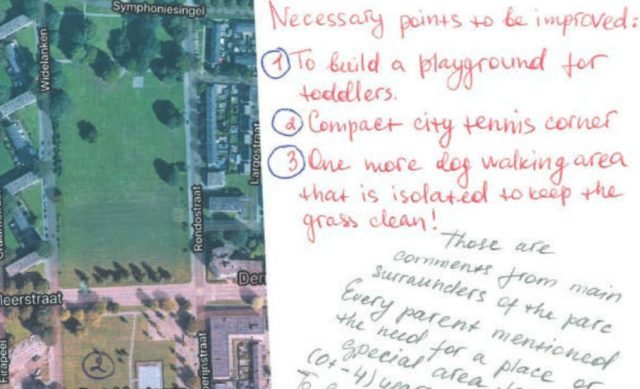 Symphoniesingel
Widelanken
Largostraat
Rondostraat
Der
leerstraat
perijnstraat
2
Necessary points to be improved:
1 To build a playground for
toddlers.
2 Compact city tennis corner
3 One more dog walking area
that is isolated to keep the
grass clean!
Those are
comments from main
surraunders of the parc
Every parent mentioned
the need for a place or
special area
(0+-4)